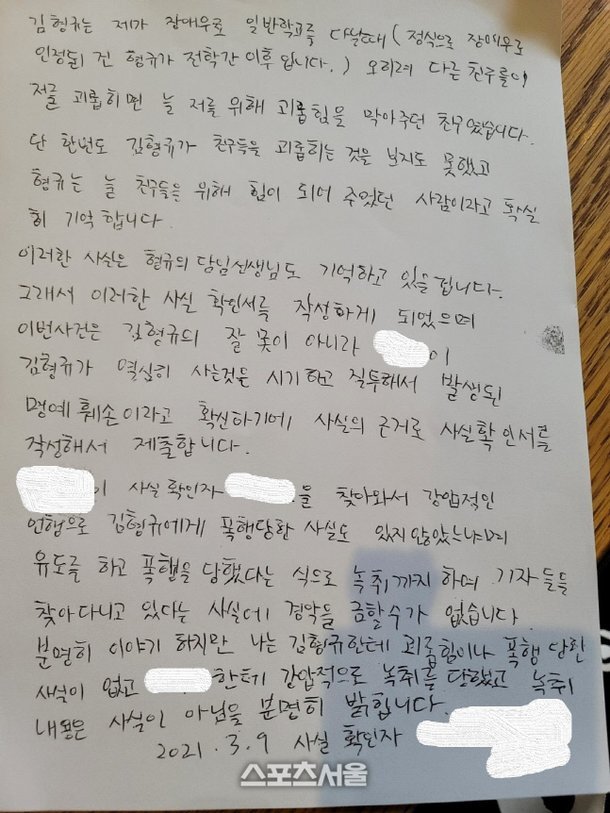 김형규는 제가 장애우로 일반학교를 다닐때 (정식으로 장애우로
인정되기 전 형규가 전학간 이후 입니다.) 오히려 다른 친구들이
저를 괴롭히면 늘 저를 위해 괴롭힘을 막아주던 친구였습니다.
단 한번도 김형규가 친구들을 괴롭히는 것을 보지도 못했고
형규는 늘 친구들을 위해 힘이 되어 주었던 사람이라고 확실
히 기억합니다.
이러한 사실은 형규의 담임선생님도 기억하고 있을겁니다.
그래서 이러한 사실 확인서를 작성하게 되었으며
이번사건은 김형규의 잘 못이 아니라 이
김형규가 열심히 사는것을 시기하고 질투해서 발생된
명예훼손이라고 확신하기에 사실의 근거로 사실확인서를
작성해서 제출합니다.
이 사실 확인자 을 찾아와서 강압적인
언행으로 김형규에게 폭행당한 사실도 있지않았느냐며
유도를 하고 폭행을 당했다는 식으로 녹취까지 하며 기자들을
찾아다니고 있다는 사실에 경악을 금할수가 없습니다.
분명히 이야기 하지만 나는 김형규한테 괴롭힘이나 폭행 당한
사실이 없고 한테 강압적으로 녹취를 당했고 녹취
내용은 사실이 아님을 분명히 밝힙니다.
2021.3.9 사실 확인자
스포츠서울